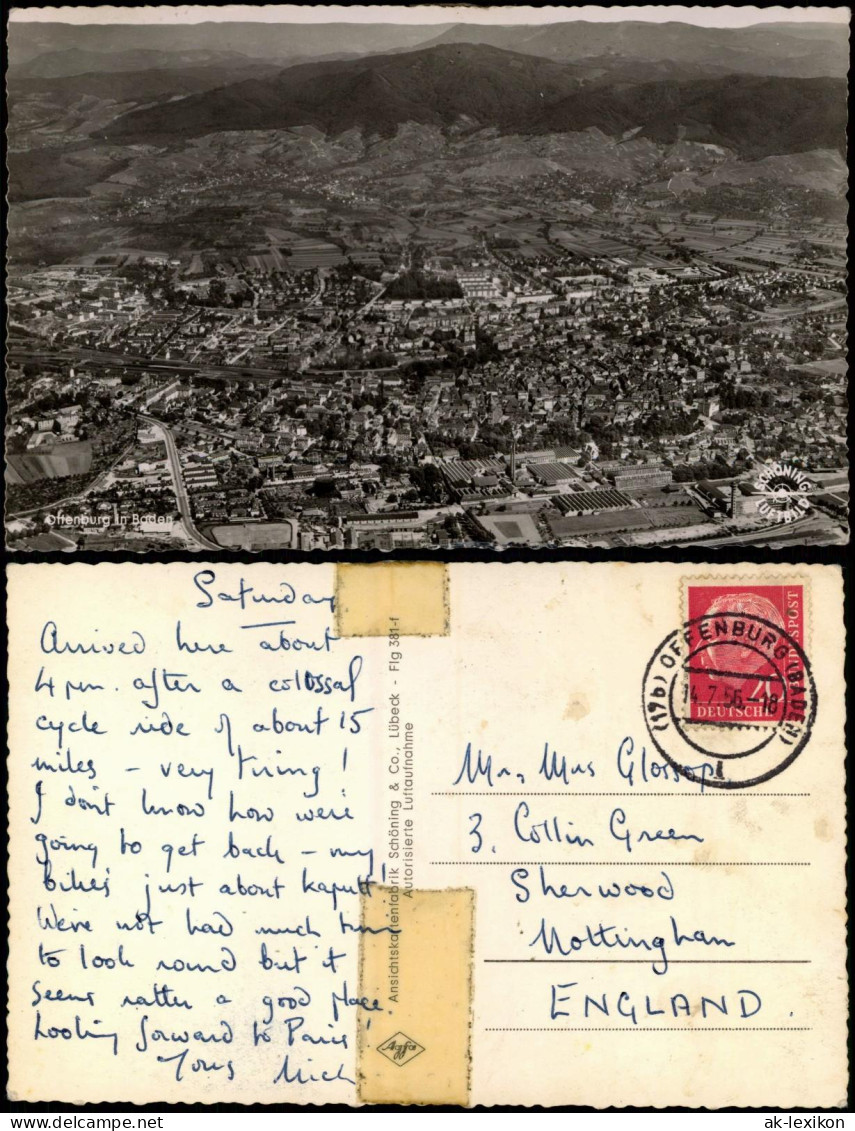 Offenburg in Baden
SCHÖNING
LUFTBILD
Saturday
Arrived here about
4 pm. after a colossal
cycle ride of about 15
miles - very tiring!
I don't know how we're
going to get back - my
bike's just about kaputt!
We've not had much time
to look round but it
seems rather a good place.
Looking forward to Paris!
Yours Mich
Ansichtskartenfabrik Schöning & Co., Lübeck - Flg 381-f
Autorisierte Luftaufnahme
Agfa
DEUTSCHE BUNDESPOST
20
(17b) OFFENBURG (BADEN)
14.7.56-18
1
Mr, Mrs Glossop,
3, Collin Green
Sherwood
Nottingham
ENGLAND.
© ak-lexikon
ak-lexikon